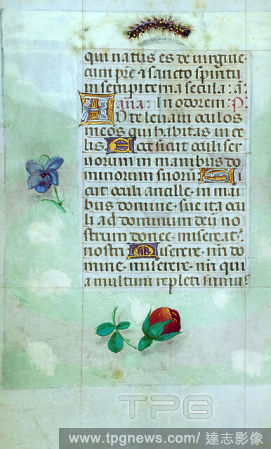 qui natus es de virgine
cum pr̄e ⁊ sancto spiritu
in sempiterna secula: a:
ana: In odorem: P
AD te levavi oculos
meos qui habitas in ce
lis Ecce sicut oculi ser
uorum in manibus do
minorum suorū Si
cut oculi ancille in ma
nibus domine sue ita ocu
li ad dominum deū no
strum donec misereat̄
nostri Miserere nr̄i do
mine miserere nr̄i qui
a multum repleti sumus
TPG
www.tpgnews.com/ 達志影像